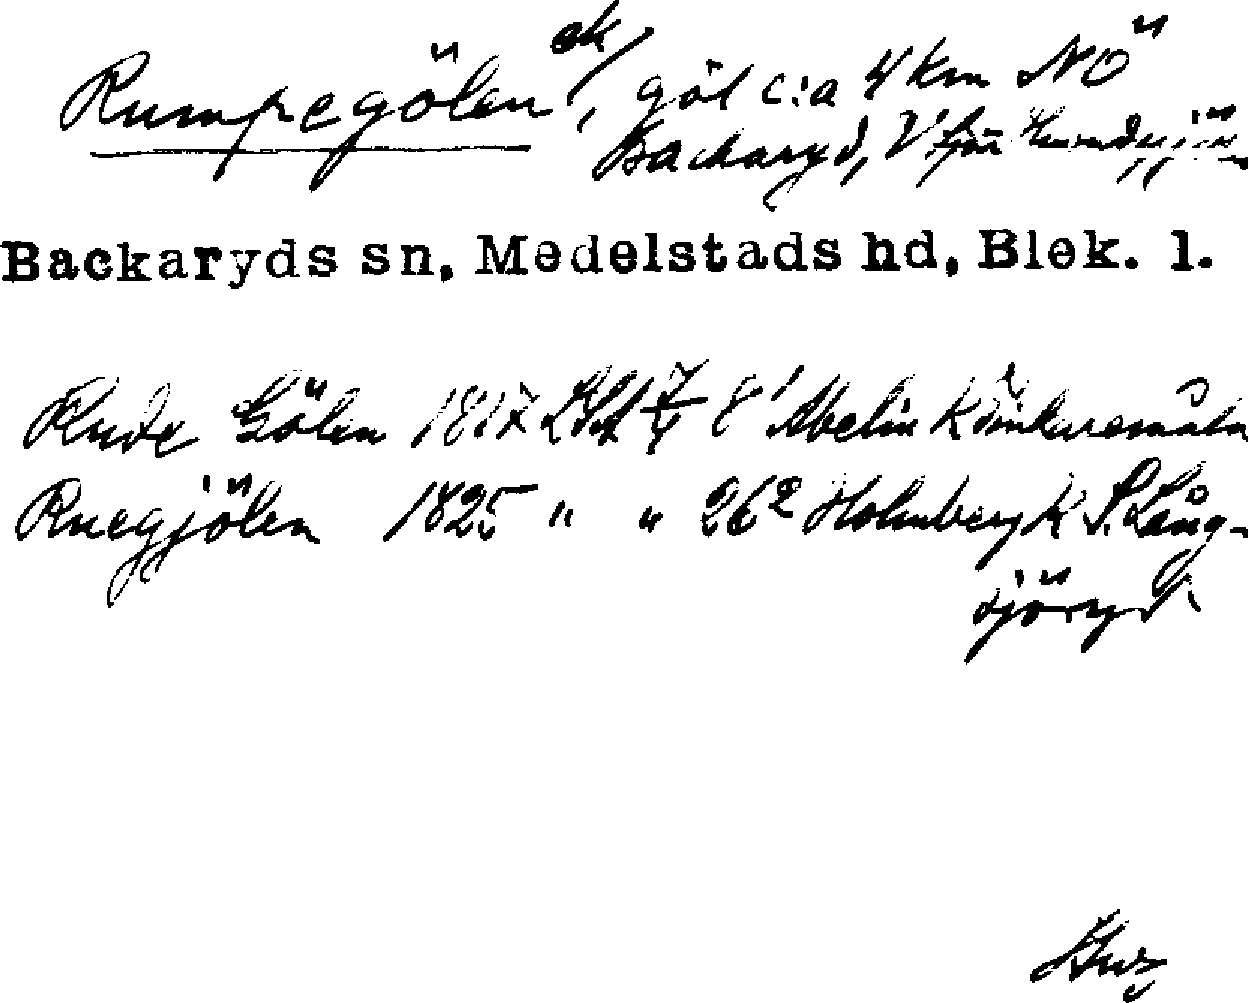 Rumpegölen ek/, göl c:a 4 km NÖ
Backaryd, V från Hundsjön
Backaryds sn, Medelstads hd, Blek. l.
Rude Gölen 1817 LSA 8' Abelin K Könkaremåla
Ruegjölen 1825 " " 26² Holmberg K S. Lång-
sjöryd